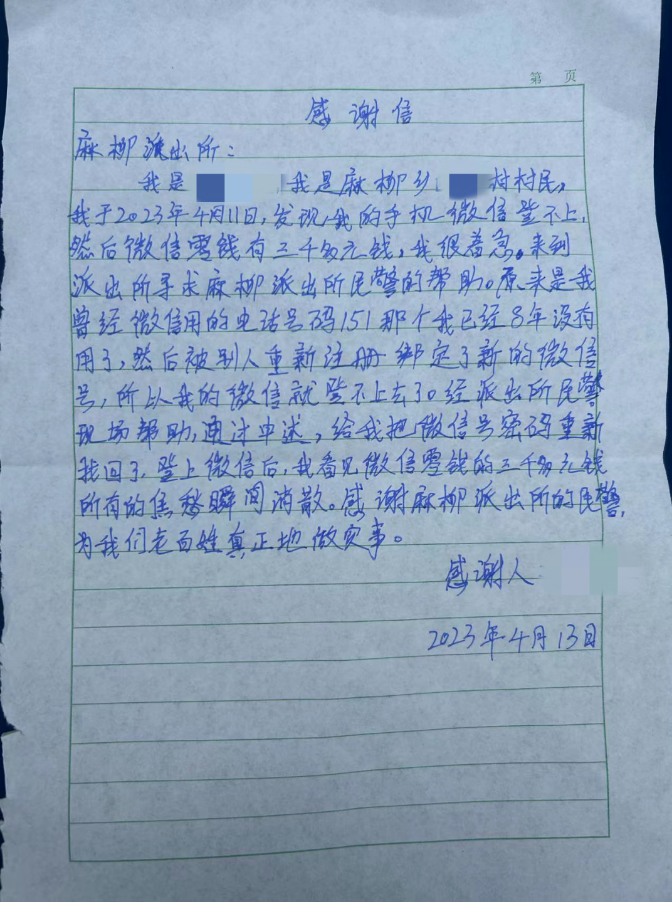 第 页
感谢信
麻柳派出所：
我是 我是麻柳乡 村村民，
我于2023年4月11日，发现我的手机微信登不上，
然后微信零钱有三千多元钱，我很着急。来到
派出所寻求麻柳派出所民警的帮助。原来是我
曾经微信用的电话号码151那个我已经8年没有
用了，然后被别人重新注册绑定了新的微信
号，所以我的微信就登不上去了。经派出所民警
现场帮助，通过申述，给我把微信号密码重新
找回了，登上微信后，我看见微信零钱的三千多元钱
所有的焦愁瞬间消散。感谢麻柳派出所的民警，
为我们老百姓真正地做实事。
感谢人
2023年4月13日